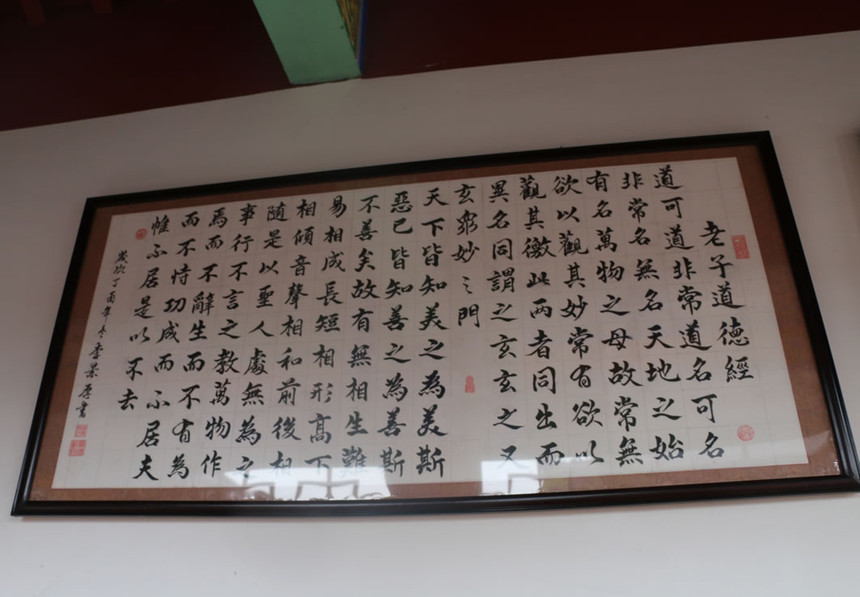 老子道德經
道可道非常道名可名
非常名無名天地之始
有名萬物之母故常無
欲以觀其妙常有欲以
觀其徼此兩者同出而
異名同謂之玄玄之又
玄衆妙之門
天下皆知美之為美斯
惡已皆知善之為善斯
不善矣故有無相生難
易相成長短相形高下
相傾音聲相和前後相
隨是以聖人處無為之
事行不言之教萬物作
焉而不辭生而不有為
而不恃功成而不居夫
惟不居是以不去
歲次丁酉年冬李景書